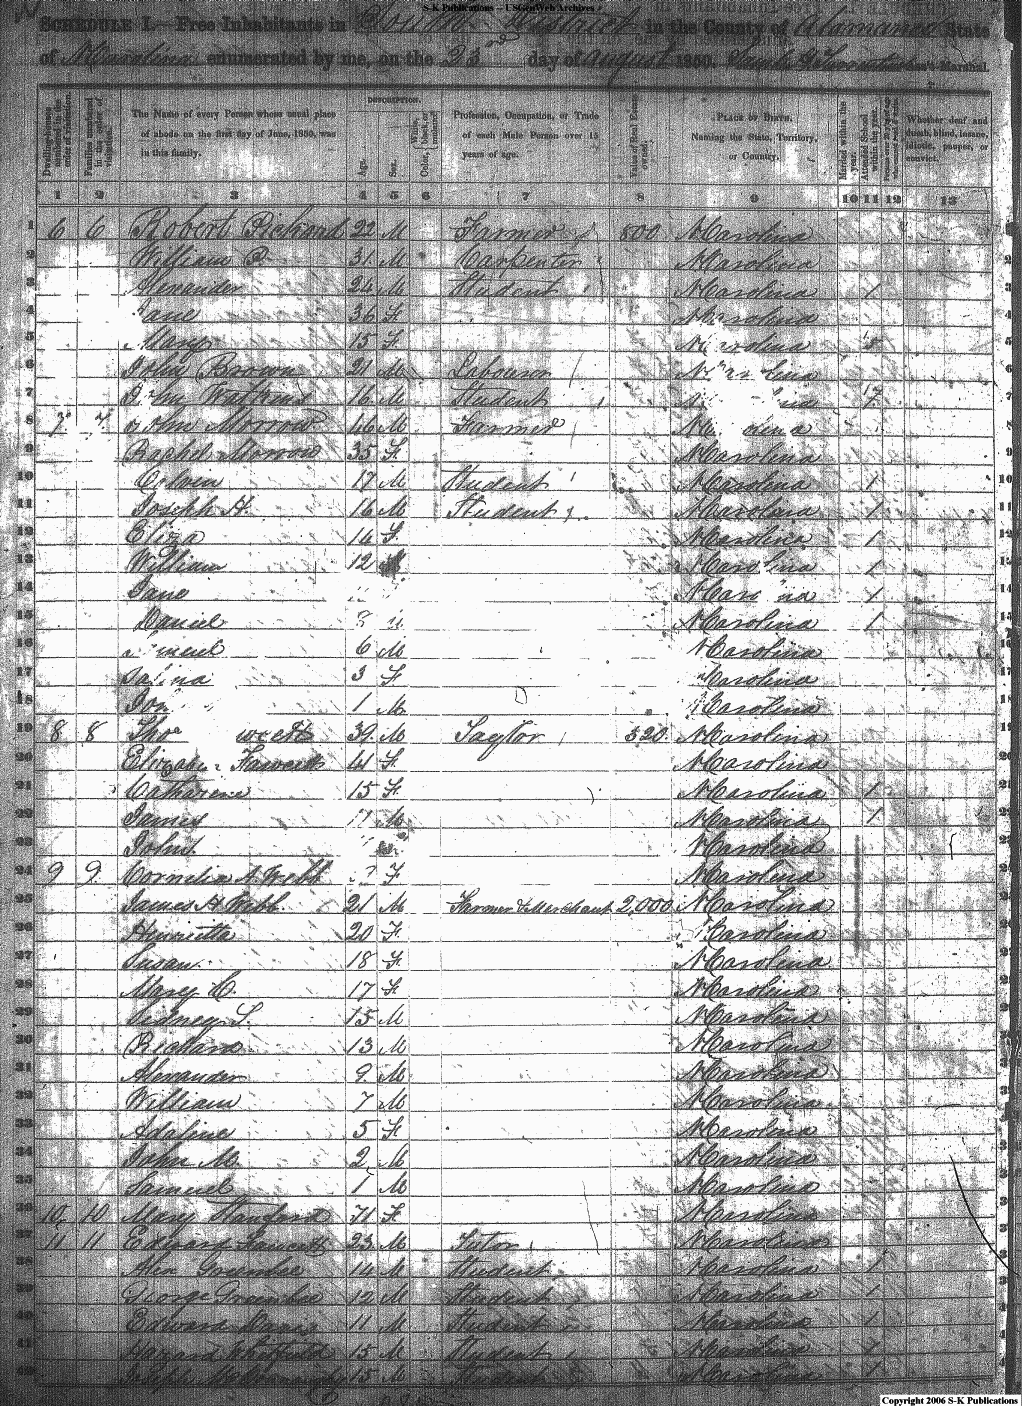 S-K Publications -- USGenWeb Archives
SCHEDULE I.—Free Inhabitants in District in the County of Alamance State
of N Carolina enumerated by me, on the 23rd day of August 1850. Marshal.
Dwelling-houses numbered in the order of visitation.
Families numbered in the order of visitation.
The Name of every Person whose usual place of abode on the first day of June, 1850, was in this family.
DESCRIPTION.
Age.
Sex.
Color, White, black, or mulatto.
Profession, Occupation, or Trade of each Male Person over 15 years of age.
Value of Real Estate owned.
PLACE OF BIRTH. Naming the State, Territory, or Country.
Married within the year.
Attended School within the year.
Whether deaf and dumb, blind, insane, idiotic, pauper, or convict.
1 2 3 4 5 6 7 8 9 10 11 12 13
1 6 6 Robert 22 M Farmer 800 N Carolina
2 William 31 M Carpenter N Carolina
3 Alexander 24 M Student N Carolina 1
4 Jane 36 F N Carolina
5 Mary 15 F N Carolina
6 John Brown 21 M Labourer N Carolina
7 John Watkins 16 M Student
8 7 7 John Morrow 46 M Farmer
9 Rachel Morrow 35 F N Carolina
10 Calvin 17 M Student N Carolina 1
11 Joseph H. 16 M Student N Carolina 1
12 Eliza 14 F N Carolina 1
13 William 12 M N Carolina 1
14 Jane N Carolina 1
15 Daniel N Carolina 1
16 6 M N Carolina
17 3 F N Carolina
18 1 M N Carolina
19 8 8 39 M Taylor 320 N Carolina
20 Faucett 41 F N Carolina
21 Catharine 15 F N Carolina 1
22 James M N Carolina 1
23 John N Carolina
24 9 9 Cornelia A. Webb F N Carolina
25 James H Webb 21 M Farmer & Merchant 2,000 N Carolina
26 Henrietta 20 F N Carolina
27 Susan 18 F N Carolina
28 Mary C. 17 F N Carolina
29 Sidney S. 15 M N Carolina
30 Richard 13 M N Carolina
31 Alexander 9 M N Carolina
32 William 7 M N Carolina
33 Adaline 5 F N Carolina
34 John M. 2 M N Carolina
35 Samuel 1 M N Carolina
36 10 10 Mary Stanford 71 F N Carolina
37 11 11 Edward Faucett 23 M Tutor N Carolina
38 14 M Student N Carolina 1
39 George 12 M Student N Carolina 1
40 Edward 11 M Student N Carolina 1
41 Hazard Whitfield 15 M Student N Carolina 1
42 Joseph 15 M Student N Carolina 1
Copyright 2006 S-K Publications